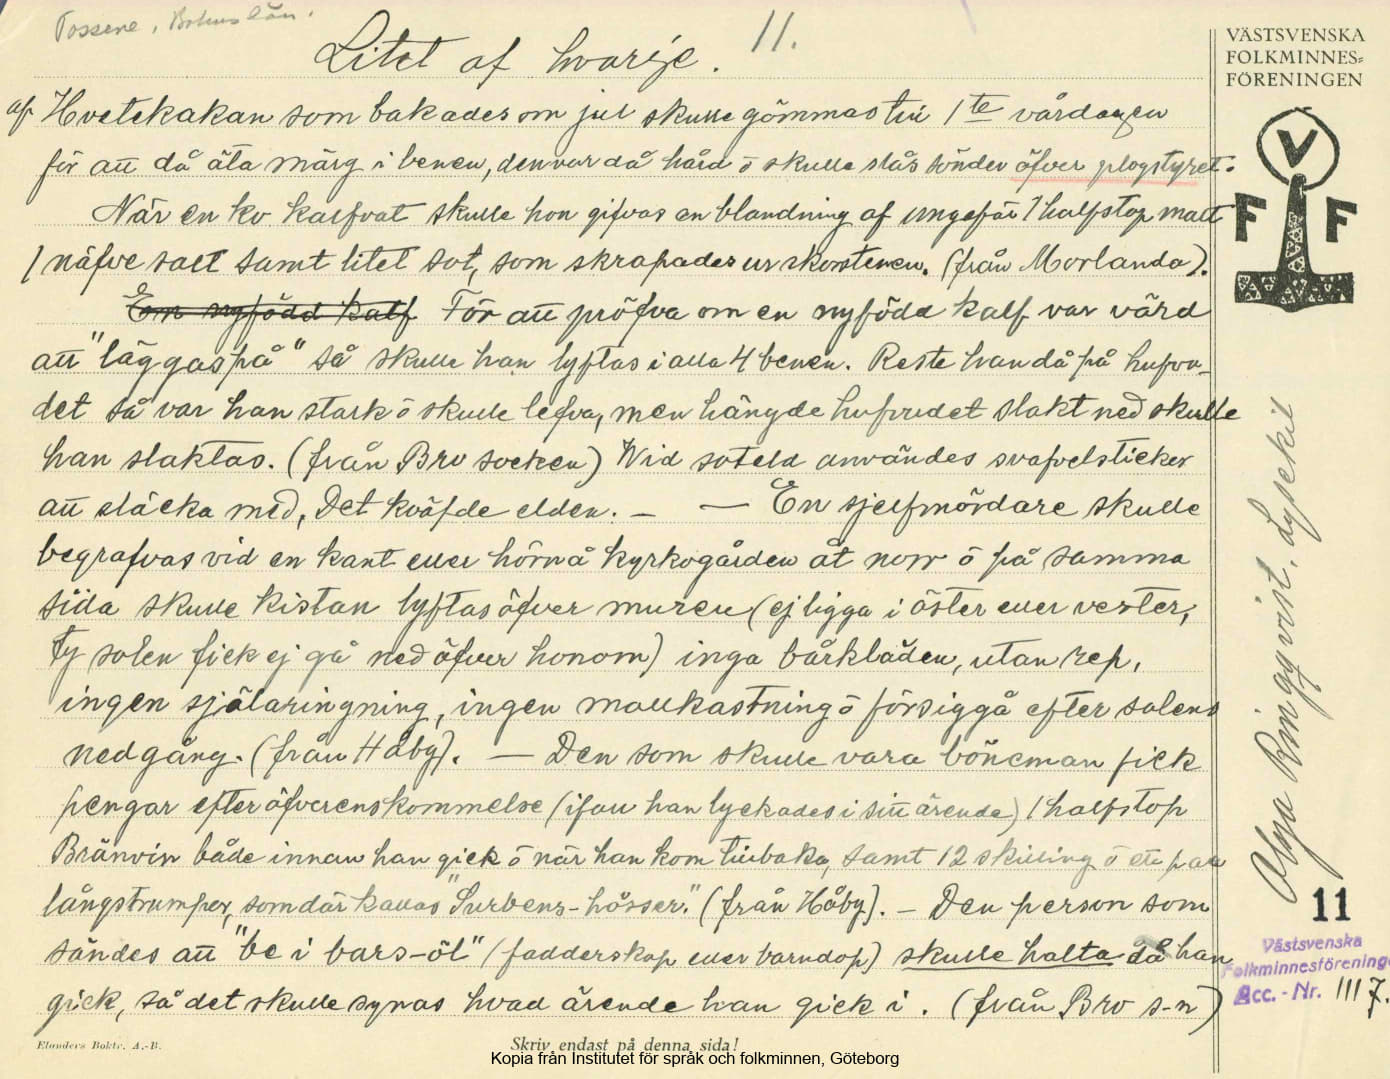 Tossene, Bohuslän.
Litet af hvarje.
11.
VÄSTSVENSKA
FOLKMINNES-
FÖRENINGEN
af Hvetekakan som bakades om jul skulle gömmas till 1te vårdagen
för att då äta märg i benen, den var då hård ö skulle slås sönder öfver plogstyret.
När en ko kalfvat skulle hon gifvas en blandning af ungefär 1 halfstop malt
1 näfve salt samt litet sot, som skrapades ur skorstenen. (från Morlanda).
En nyfödd kalf För att pröfva om en nyfödd kalf var värd
att "läggas på" så skulle han lyftas i alla 4 benen. Reste han då på hufvu-
det så var han stark ö skulle lefva, men hängde hufvudet slakt ned skulle
han slaktas. (från Bro socken) Wid soteld användes svafvelsticker
att släcka med, Det kväfde elden. — — En sjelfmördare skulle
begrafvas vid en kant eller hörn å kyrkogården åt norr ö på samma
sida skulle kistan lyftas öfver muren (ej ligga i öster eller vester,
ty solen fick ej gå ned öfver honom) inga bårkläden, utan rep,
ingen själaringning, ingen mullkastning ö försiggå efter solens
nedgång. (från Håby). — Den som skulle vara böneman fick
pengar efter öfverenskommelse (ifall han lyckades i sitt ärende) 1 halfstop
Bränvin både innan han gick ö när han kom tillbaka, samt 12 skilling ö ett par
långstrumper, som där kallas "Surbens-hösser." (från Håby). — Den person som
sändes att "be i bars-öl" (fadderskap eller barndop) skulle halta då han
gick, så det skulle synas hvad ärende han gick i. (från Bro s-n)
V
F F
Olga Ringqvist, Lysekil
11
Västsvenska
Folkminnesförening
Acc. - Nr. 1117.
Elanders Boktr. A.-B.
Skriv endast på denna sida!
Kopia från Institutet för språk och folkminnen, Göteborg